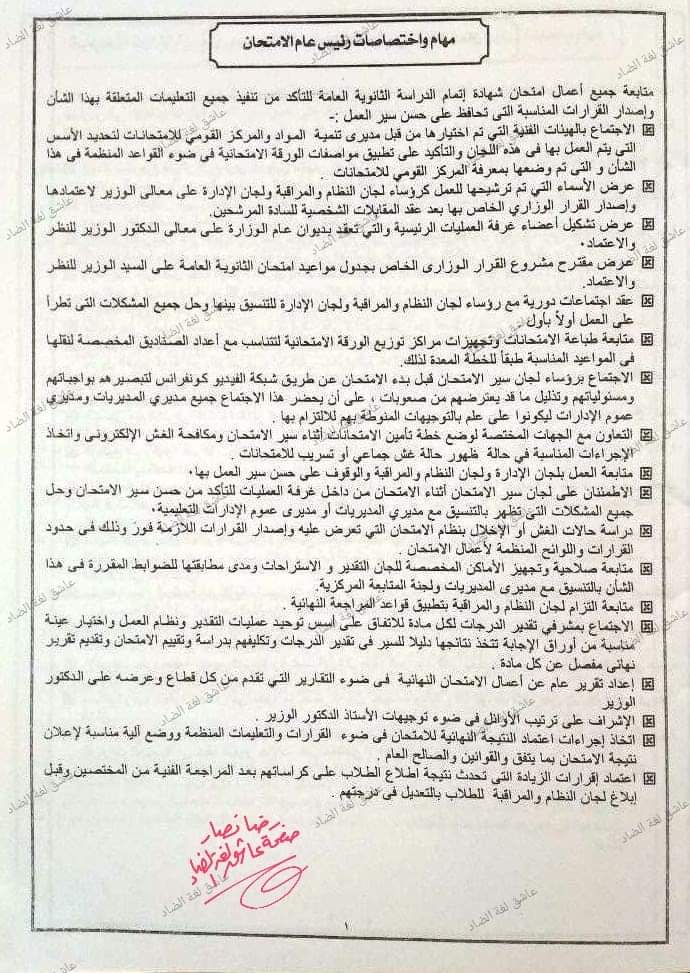 مهام واختصاصات رئيس عام الامتحان
متابعة جميع أعمال امتحان شهادة إتمام الدراسة الثانوية العامة للتأكد من تنفيذ جميع التعليمات المتعلقة بهذا الشأن
وإصدار القرارات المناسبة التى تحافظ على حسن سير العمل :-
الاجتماع بالهيئات الفنية التي تم اختيارها من قبل مديرى تنمية المواد والمركز القومي للامتحانات لتحديد الأسس
التى يتم العمل بها فى هذه اللجان والتأكيد على تطبيق مواصفات الورقة الامتحانية فى ضوء القواعد المنظمة فى هذا
الشأن و التى تم وضعها بمعرفة المركز القومي للامتحانات .
عرض الأسماء التي تم ترشيحها للعمل كرؤساء لجان النظام والمراقبة ولجان الإدارة على معالى الوزير لاعتمادها
وإصدار القرار الوزاري الخاص بها بعد عقد المقابلات الشخصية للسادة المرشحين.
عرض تشكيل أعضاء غرفة العمليات الرئيسية والتي تعقد بديوان عام الوزارة على معالى الدكتور الوزير للنظر
والاعتماد٠
عرض مقترح مشروع القرار الوزارى الخاص بجدول مواعيد امتحان الثانوية العامة على السيد الوزير للنظر
والاعتماد.
عقد اجتماعات دورية مع رؤساء لجان النظام والمراقبة ولجان الإدارة للتنسيق بينها وحل جميع المشكلات التى تطرأ
على العمل أولاً بأول.
متابعة طباعة الامتحانات وتجهيزات مراكز توزيع الورقة الامتحانية لتتناسب مع أعداد الصناديق المخصصة لنقلها
فى المواعيد المناسبة طبقاً للخطة المعدة لذلك.
الاجتماع برؤساء لجان سير الامتحان قبل بدء الامتحان عن طريق شبكة الفيديو كونفرانس لتبصيرهم بواجباتهم
ومسئولياتهم وتذليل ما قد يعترضهم من صعوبات ، على أن يحضر هذا الاجتماع جميع مديري المديريات ومديري
عموم الإدارات ليكونوا على علم بالتوجيهات المنوطة بهم للالتزام بها .
التعاون مع الجهات المختصة لوضع خطة تأمين الامتحانات أثناء سير الامتحان ومكافحة الغش الإلكترونى واتخاذ
الإجراءات المناسبة في حالة ظهور حالة غش جماعي أو تسريب للامتحانات .
متابعة العمل بلجان الإدارة ولجان النظام والمراقبة والوقوف على حسن سير العمل بها٠
الاطمئنان على لجان سير الامتحان أثناء الامتحان من داخل غرفة العمليات للتأكد من حسن سير الامتحان وحل
جميع المشكلات التى تظهر بالتنسيق مع مديري المديريات أو مديرى عموم الإدارات التعليمية٠
دراسة حالات الغش أو الإخلال بنظام الامتحان التي تعرض عليه وإصدار القرارات اللازمة فور وذلك فى حدود
القرارات واللوائح المنظمة لأعمال الامتحان .
متابعة صلاحية وتجهيز الأماكن المخصصة للجان التقدير و الاستراحات ومدى مطابقتها للضوابط المقررة فى هذا
الشأن بالتنسيق مع مديرى المديريات ولجنة المتابعة المركزية.
متابعة التزام لجان النظام والمراقبة بتطبيق قواعد المراجعة النهائية .
الاجتماع بمشرفي تقدير الدرجات لكل مادة للاتفاق على أسس توحيد عمليات التقدير ونظام العمل واختيار عينة
مناسبة من أوراق الإجابة تتخذ نتائجها دليلا للسير فى تقدير الدرجات وتكليفهم بدراسة وتقييم الامتحان وتقديم تقرير
نهائى مفصل عن كل مادة .
إعداد تقرير عام عن أعمال الامتحان النهائية فى ضوء التقارير التي تقدم من كل قطاع وعرضه على الدكتور
الوزير
الإشراف على ترتيب الأوائل فى ضوء توجيهات الأستاذ الدكتور الوزير .
اتخاذ إجراءات اعتماد النتيجة النهائية للامتحان في ضوء القرارات والتعليمات المنظمة ووضع آلية مناسبة لإعلان
نتيجة الامتحان بما يتفق والقوانين والصالح العام .
اعتماد إقرارات الزيادة التى تحدث نتيجة اطلاع الطلاب على كراساتهم بعد المراجعة الفنية من المختصين وقبل
إبلاغ لجان النظام والمراقبة للطلاب بالتعديل فى درجتهم .
رضا نصار
صفحة عاشق لغة الضاد
١
عاشق لغة الضاد